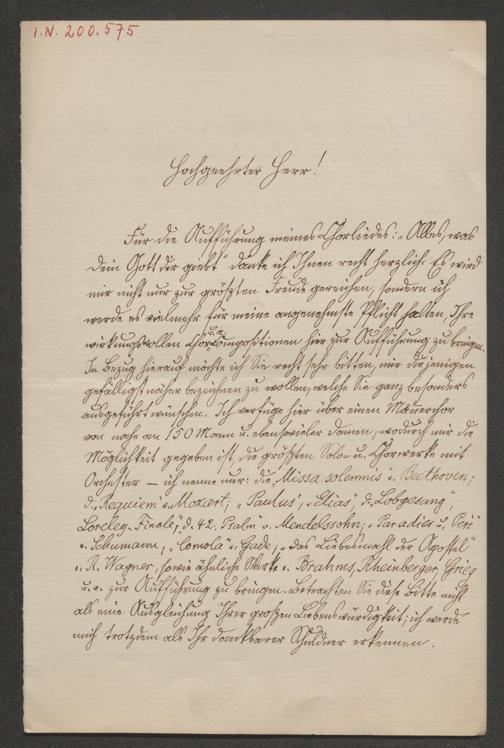 I.N. 200.575
Hochgeehrter Herr!
Für die Aufführung meines Chorliedes: „Alles, was
dein Gott dir giebt" danke ich Ihnen recht herzlich. Es wird
mir nicht nur zur größten Freude gereichen, sondern ich
werde es vielmehr für meine angenehmste Pflicht halten, Ihre
u. a.
wirkungsvollen Chorcompositionen hier zur Aufführung zu bringen.
In Bezug hierauf möchte ich Sie recht sehr bitten, mir diejenigen
gefälligst näher bezeichnen zu wollen, welche Sie ganz besonders
ausgeführt wünschen. Ich verfüge hier über einen Männerchor
von nahe an 150 Mann u. ebensovieler Damen, wodurch mir die
Möglichkeit gegeben ist, die größten Solo- u. Chorwerke mit
Orchester — ich nenne nur: die Missa solemnis v. Beethoven,
d. „Requiem" v. Mozart, „Paulus", „Elias", d. „Lobgesang",
Loreley-Finale, d. 42. Psalm v. Mendelssohn, „Paradies u. Peri"
v. Schumann, „Comola" v. Gade, „Das Liebesmahl der Apostel"
v. R. Wagner, sowie ähnliche Werke v. Brahms, Rheinberger, Grieg
u. a. zur Aufführung zu bringen. Betrachten Sie diese Bitte nicht
als eine Ausgleichung Ihrer großen Liebenswürdigkeit; ich werde
mich trotzdem als Ihr dankbarer Schuldner erkennen.